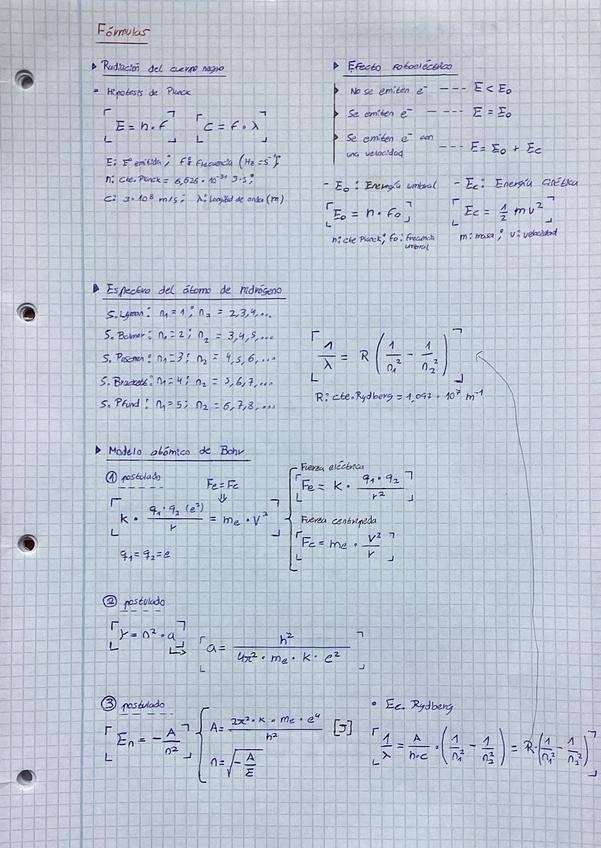 Fórmulas
▸ Radiación del cuerpo negro
- Hipótesis de Planck
E = h · f
c = f · λ
E: E emitida; f: Frecuencia (Hz = s⁻¹)
h: cte. Planck = 6,626 · 10⁻³⁴ J·s;
c: 3 · 10⁸ m/s; λ: Longitud de onda (m)
▸ Efecto fotoeléctrico
▸ No se emiten e⁻ --- E < E₀
▸ Se emiten e⁻ --- E = E₀
▸ Se emiten e⁻ con
una velocidad --- E = E₀ + Ec
- E₀: Energía umbral
E₀ = h · f₀
h: cte Planck; f₀: frecuencia
umbral
- Ec: Energía cinética
Ec = 1/2 mv²
m: masa; v: velocidad
▸ Espectro del átomo de hidrógeno
S. Lyman: n₁ = 1; n₂ = 2,3,4,...
S. Balmer: n₁ = 2; n₂ = 3,4,5,...
S. Paschen: n₁ = 3; n₂ = 4,5,6,...
S. Brackett: n₁ = 4; n₂ = 5,6,7,...
S. Pfund: n₁ = 5; n₂ = 6,7,8,...
1/λ = R (1/n₁² - 1/n₂²)
R: cte. Rydberg = 1,097 · 10⁷ m⁻¹
▸ Modelo atómico de Bohr
① postulado
Fe = Fc
⇓
K · q₁ · q₂ (e²)/r = me · v²
q₁ = q₂ = e
Fuerza eléctrica
Fe = K · q₁ · q₂/r²
Fuerza centrípeda
Fc = me · v²/r
② postulado
r = n² · a
a = h²/4π² · me · K · e²
③ postulado
En = - A/n²
A = 2π² · K · me · e⁴/h² [J]
n = √(- A/E)
• Ec. Rydberg
1/λ = A/h·c · (1/n₁² - 1/n₂²) = R · (1/n₁² - 1/n₂²)